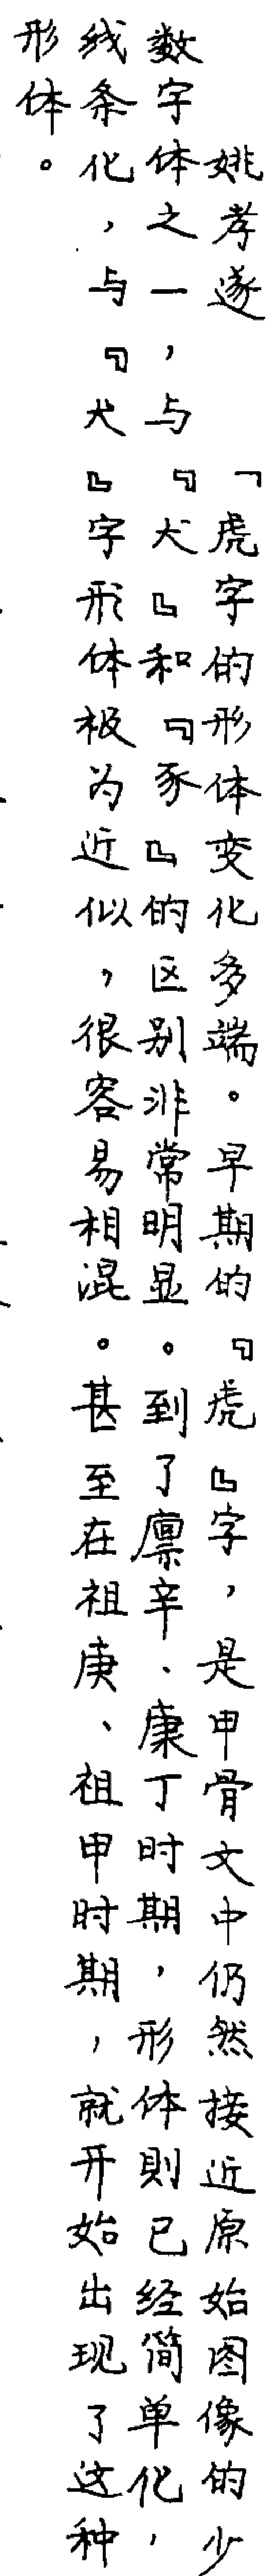 姚孝遂　「虎字的形体变化多端。早期的『虎』字，是甲骨文中仍然接近原始图像的少
数字体之一，与『犬』和『豕』的区别非常明显。到了廪辛、康丁时期，形体則已经简单化，
线条化，与『犬』字形体极为近似，很容易相混。甚至在祖庚、祖甲时期，就开始出现了这种
形体。